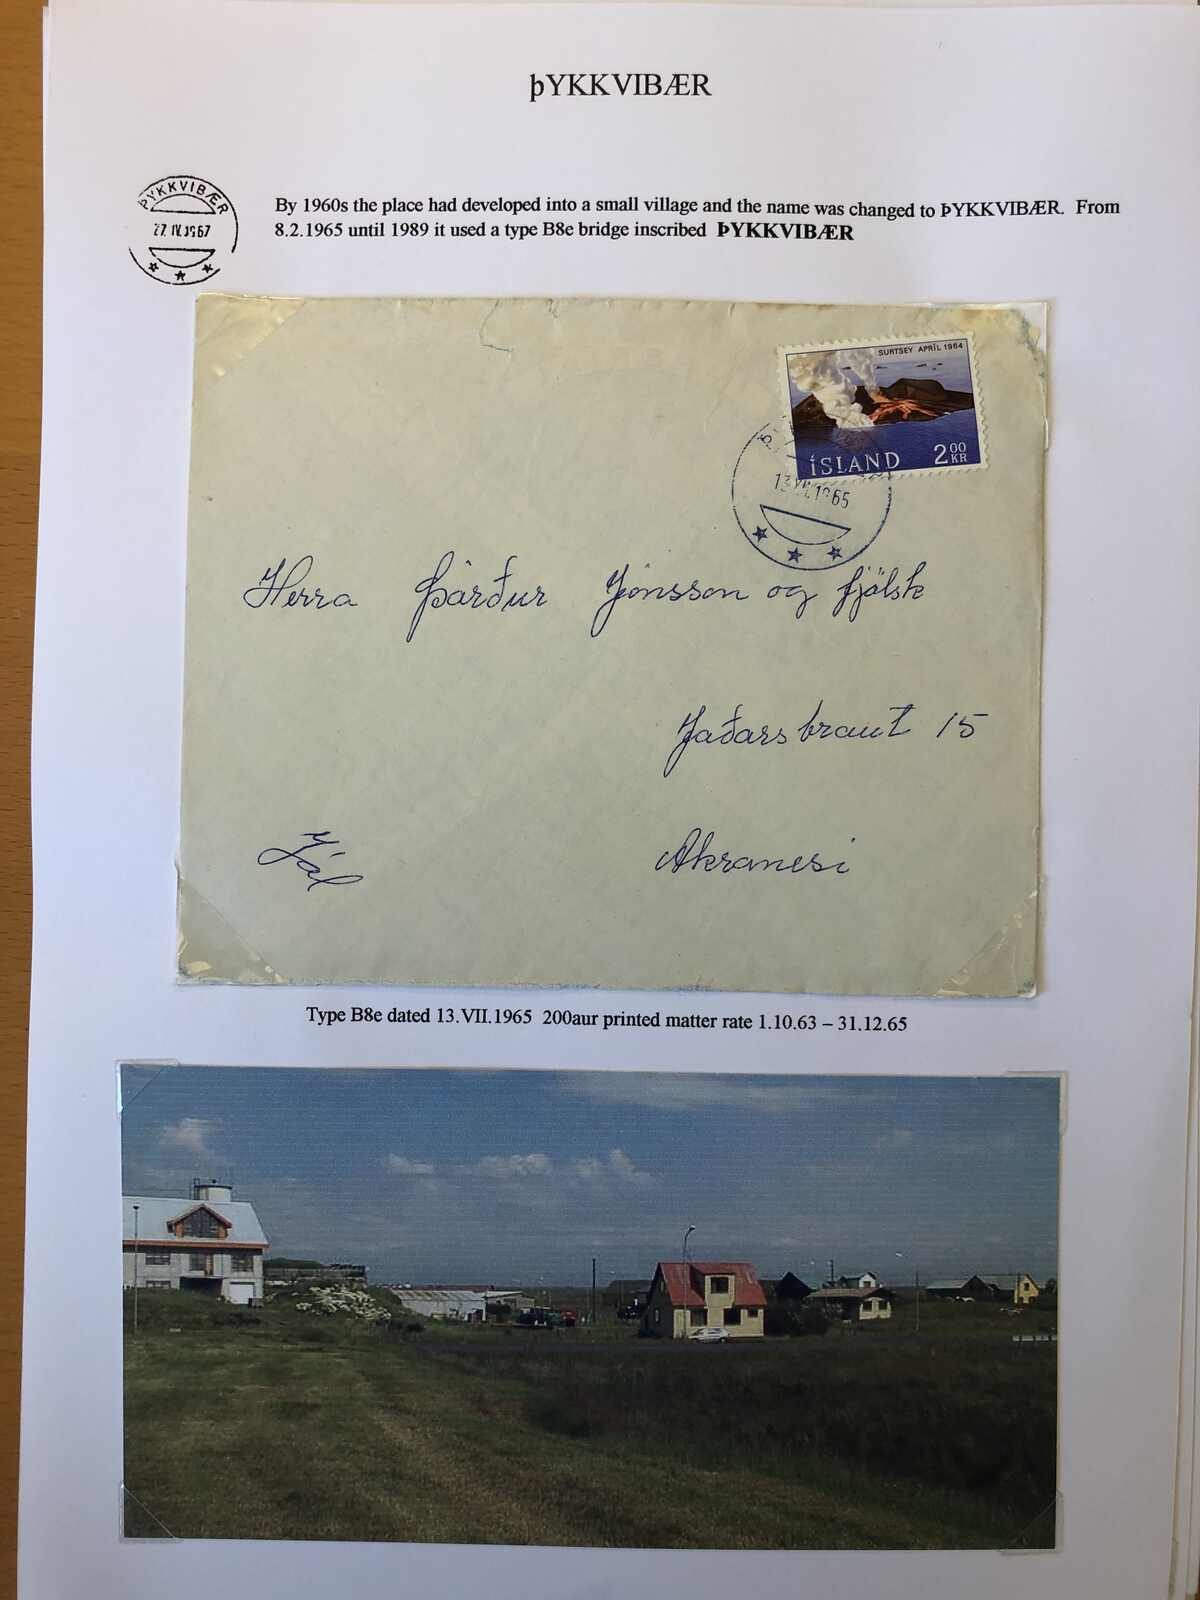 þYKKVIBÆR
ÞYKKVIBÆR
27.IV.1967
By 1960s the place had developed into a small village and the name was changed to ÞYKKVIBÆR. From
8.2.1965 until 1989 it used a type B8e bridge inscribed ÞYKKVIBÆR
SURTSEY APRÍL 1964
ÍSLAND 2 00 KR
Herra Þórður Jónsson og fjölsk
Jaðarsbraut 15
Jól
Akranesi
Type B8e dated 13.VII.1965 200aur printed matter rate 1.10.63 – 31.12.65